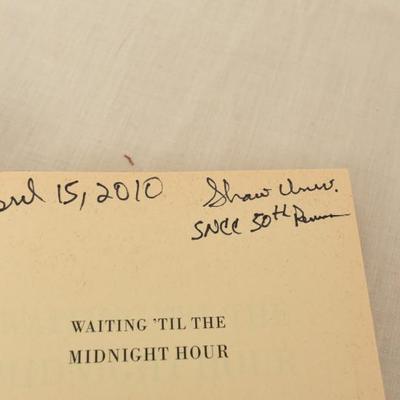 15, 2010 Shaw Univ.
SNCC 50th
WAITING 'TIL THE
MIDNIGHT HOUR